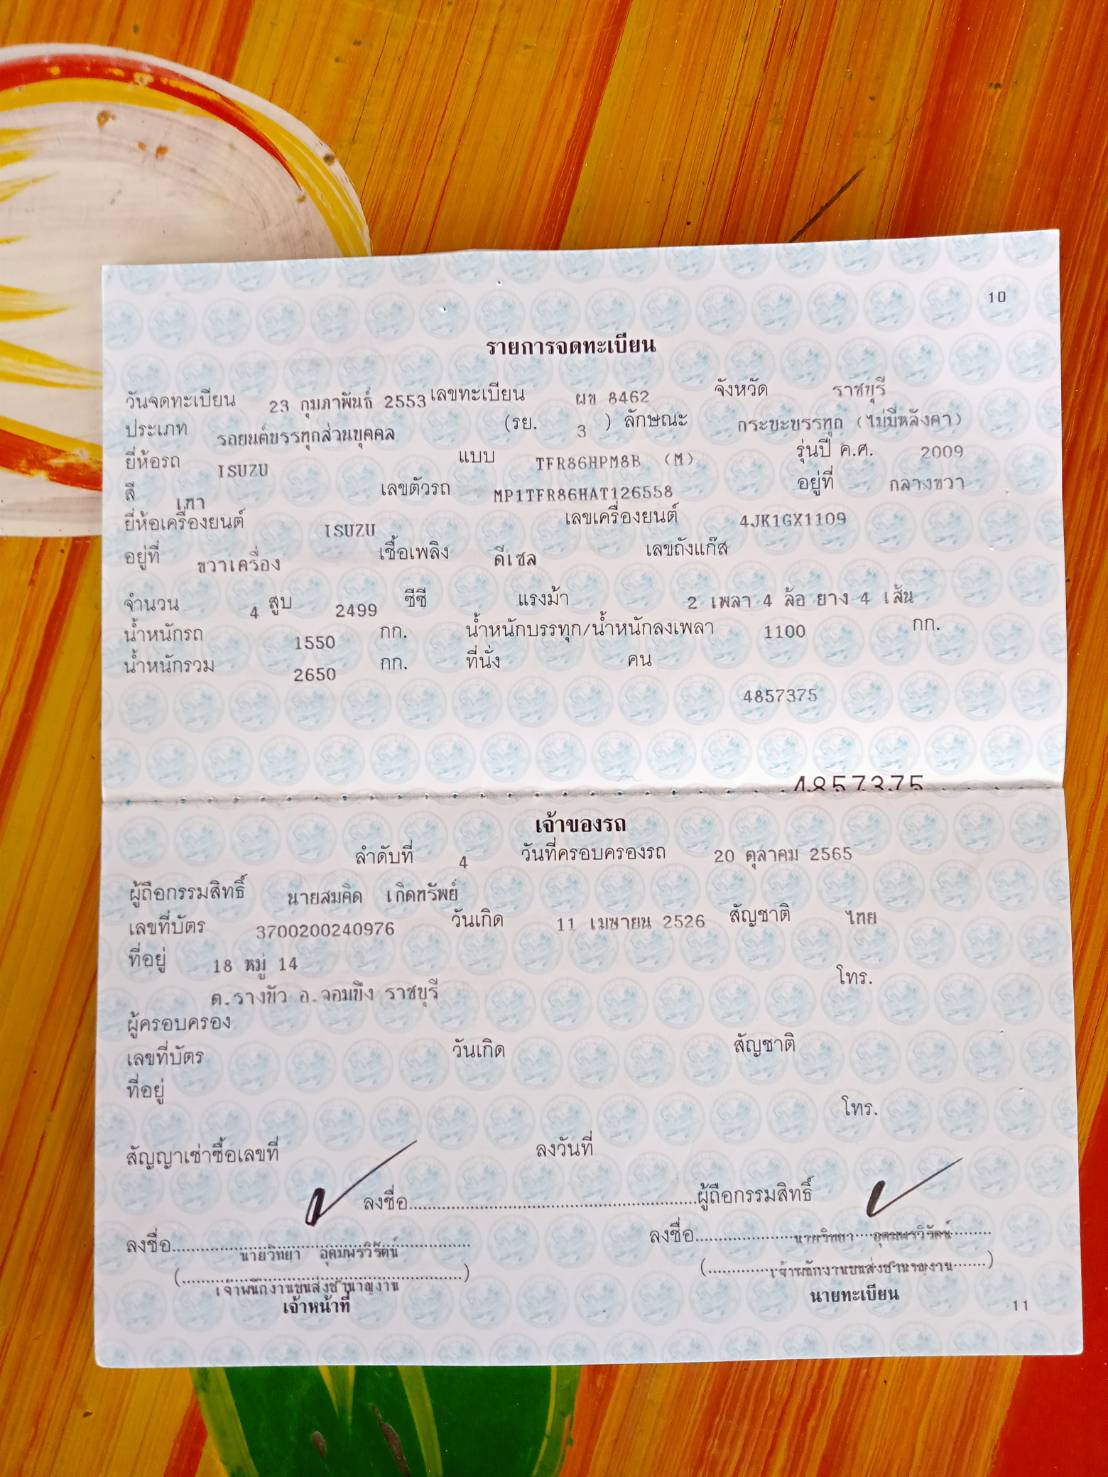 10
รายการจดทะเบียน
วันจดทะเบียน 23 กุมภาพันธ์ 2553 เลขทะเบียน ผข 8462 จังหวัด ราชบุรี
ประเภท รถยนต์บรรทุกส่วนบุคคล (รย. 3 ) ลักษณะ กระบะบรรทุก (ไม่มีหลังคา)
ยี่ห้อรถ ISUZU แบบ TFR86HPM8B (M) รุ่นปี ค.ศ. 2009
สี เทา เลขตัวรถ MP1TFR86HAT126558 อยู่ที่ กลางขวา
ยี่ห้อเครื่องยนต์ ISUZU เลขเครื่องยนต์ 4JK1GX1109
อยู่ที่ ขวาเครื่อง เชื้อเพลิง ดีเซล เลขถังแก๊ส
จำนวน 4 สูบ 2499 ซีซี แรงม้า 2 เพลา 4 ล้อ ยาง 4 เส้น
น้ำหนักรถ 1550 กก. น้ำหนักบรรทุก/น้ำหนักลงเพลา 1100 กก.
น้ำหนักรวม 2650 กก. ที่นั่ง คน
4857375
4857375
เจ้าของรถ
ลำดับที่ 4 วันที่ครอบครองรถ 20 ตุลาคม 2565
ผู้ถือกรรมสิทธิ์ นายสมคิด เกิดทรัพย์
เลขที่บัตร 3700200240976 วันเกิด 11 เมษายน 2526 สัญชาติ ไทย
ที่อยู่ 18 หมู่ 14 โทร.
ต.รางบัว อ.จอมบึง ราชบุรี
ผู้ครอบครอง
เลขที่บัตร วันเกิด สัญชาติ
ที่อยู่ โทร.
สัญญาเช่าซื้อเลขที่ ลงวันที่
ลงชื่อ ผู้ถือกรรมสิทธิ์
ลงชื่อ นายวิทยา อุดมพรวิรัตน์ ลงชื่อ นายวิทยา อุดมพรวิรัตน์
(เจ้าพนักงานขนส่งชำนาญงาน) (เจ้าพนักงานขนส่งชำนาญงาน)
เจ้าหน้าที่ นายทะเบียน
11